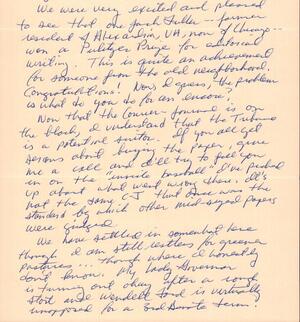 We were very excited and pleased
to see that one Jack Fuller -- former
resident of Alexandria, VA, now of Chicago --
won a Pulitzer Prize for editorial
writing. This is quite an achievement
for someone from the old neighborhood.
Congratulations! Now, I guess, the problem
is what do you do for an encore?
Now that the Courier-Journal is on
the block, I understand that the Tribune
is a potential suitor. If you all get
serious about buying the paper, give
me a call and I'll try to fill you
in on the "inside baseball" I've picked
up about what went wrong there. It's
not the same C-J that once was the
standard by which other mid-sized papers
were judged.
We have settled in somewhat here
though I am still restless for greener
pastures... though where I honestly
don't know. My lady Governor
is funny and okay after a rough
start and Wendell Ford is virtually
unopposed for a 3rd Senate term.